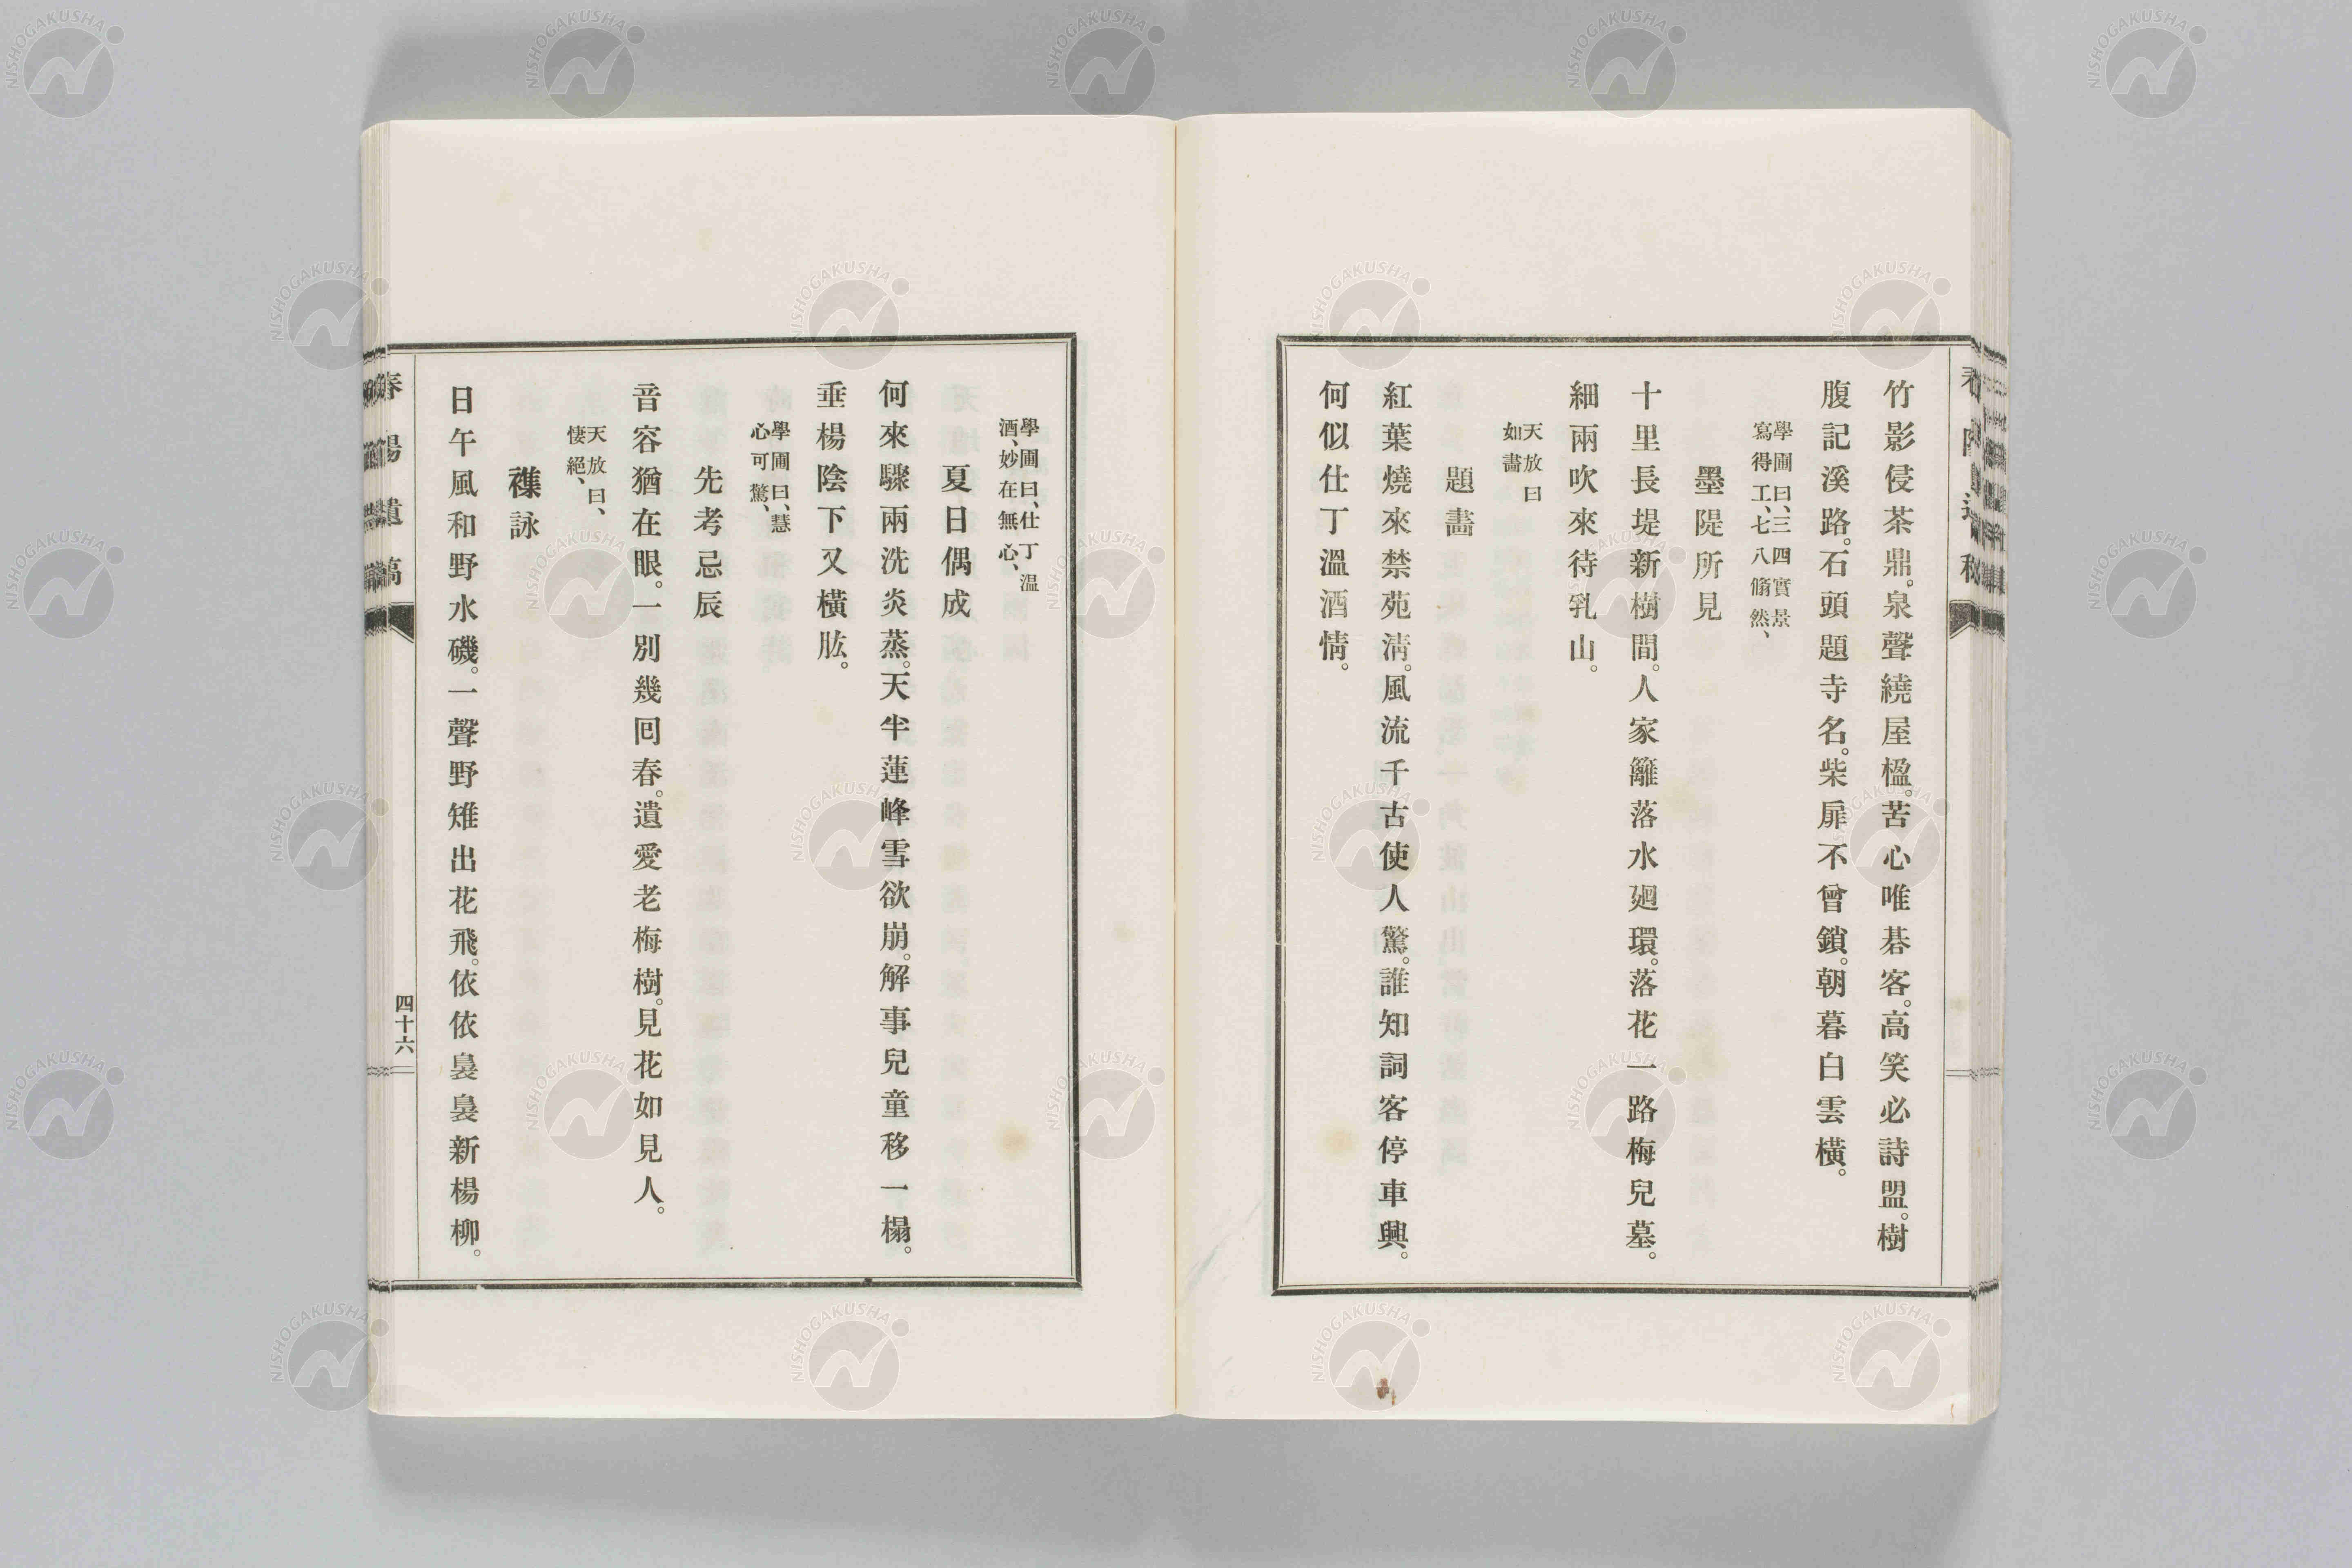 竹影侵茶鼎。泉聲繞屋楹。苦心唯碁客。高笑必詩盟。樹
腹記溪路。石頭題寺名。柴扉不曾鎖。朝暮白雲橫。
學圃曰、三四實景
寫得工、七八翛然、
墨隄所見
十里長堤新樹間。人家籬落水廻環。落花一路梅兒墓。
細雨吹來待乳山。
天放曰
如畵
題畵
紅葉燒來禁苑淸。風流千古使人驚。誰知詞客停車興。
何似仕丁溫酒情。
學圃曰、仕丁温
酒、妙在無心、
夏日偶成
何來驟雨洗炎蒸。天半蓮峰雪欲崩。解事兒童移一榻。
垂楊陰下又橫肱。
學圃曰、慧
心可驚、
先考忌辰
音容猶在眼。一別幾囘春。遺愛老梅樹。見花如見人。
天放曰、
悽絕、
襍詠
日午風和野水磯。一聲野雉出花飛。依依裊裊新楊柳。
春陽遺稿
四十六
NISHOGAKUSHA